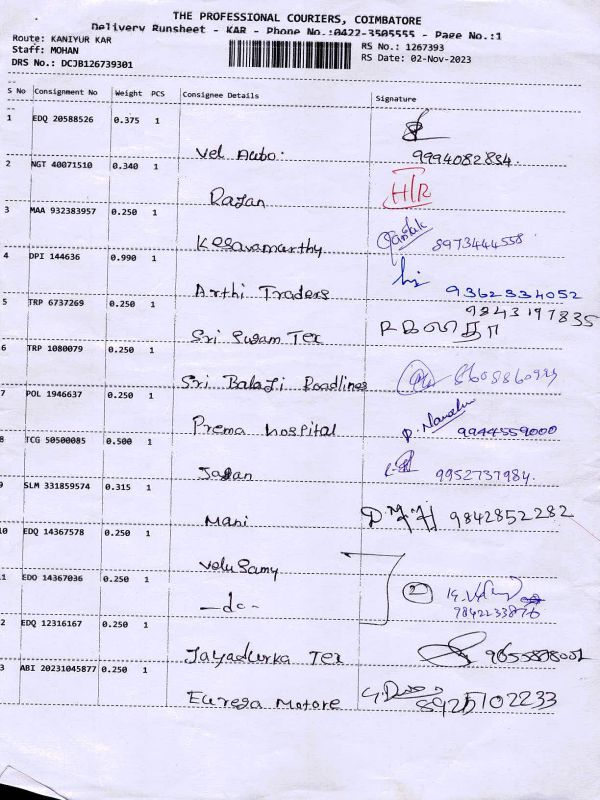 THE PROFESSIONAL COURIERS, COIMBATORE
Delivery Runsheet - KAR - Phone No.:0422-3505555 - Page No.:1
Route: KANIYUR KAR
Staff: MOHAN
DRS No.: DCJB126739301
RS No.: 1267393
RS Date: 02-Nov-2023
S No Consignment No Weight PCS Consignee Details Signature
1 EDQ 20588526 0.375 1
Vel Aubo. 9994082834.
2 NGT 40071510 0.340 1
Rajan H/R
3 MAA 932383957 0.250 1
Kesavamarthy 8973444558
4 DPI 144636 0.990 1
Arthi Traders 9362334052
5 TRP 6737269 0.250 1
9843197835
Sri Swam Tex
6 TRP 1080079 0.250 1
Sri Balaji Roadlines
7 POL 1946637 0.250 1
Prema hospital 9944559000
8 TCG 50500085 0.500 1
Jagan 9952737984.
9 SLM 331859574 0.315 1
Mani 9842852282
10 EDQ 14367578 0.250 1
Velusamy
1 EDO 14367036 0.250 1
—do- 2
2 EDQ 12316167 0.250 1
Jayadurka Tex
3 ABI 20231045877 0.250 1
Eurega Motore 8925102233